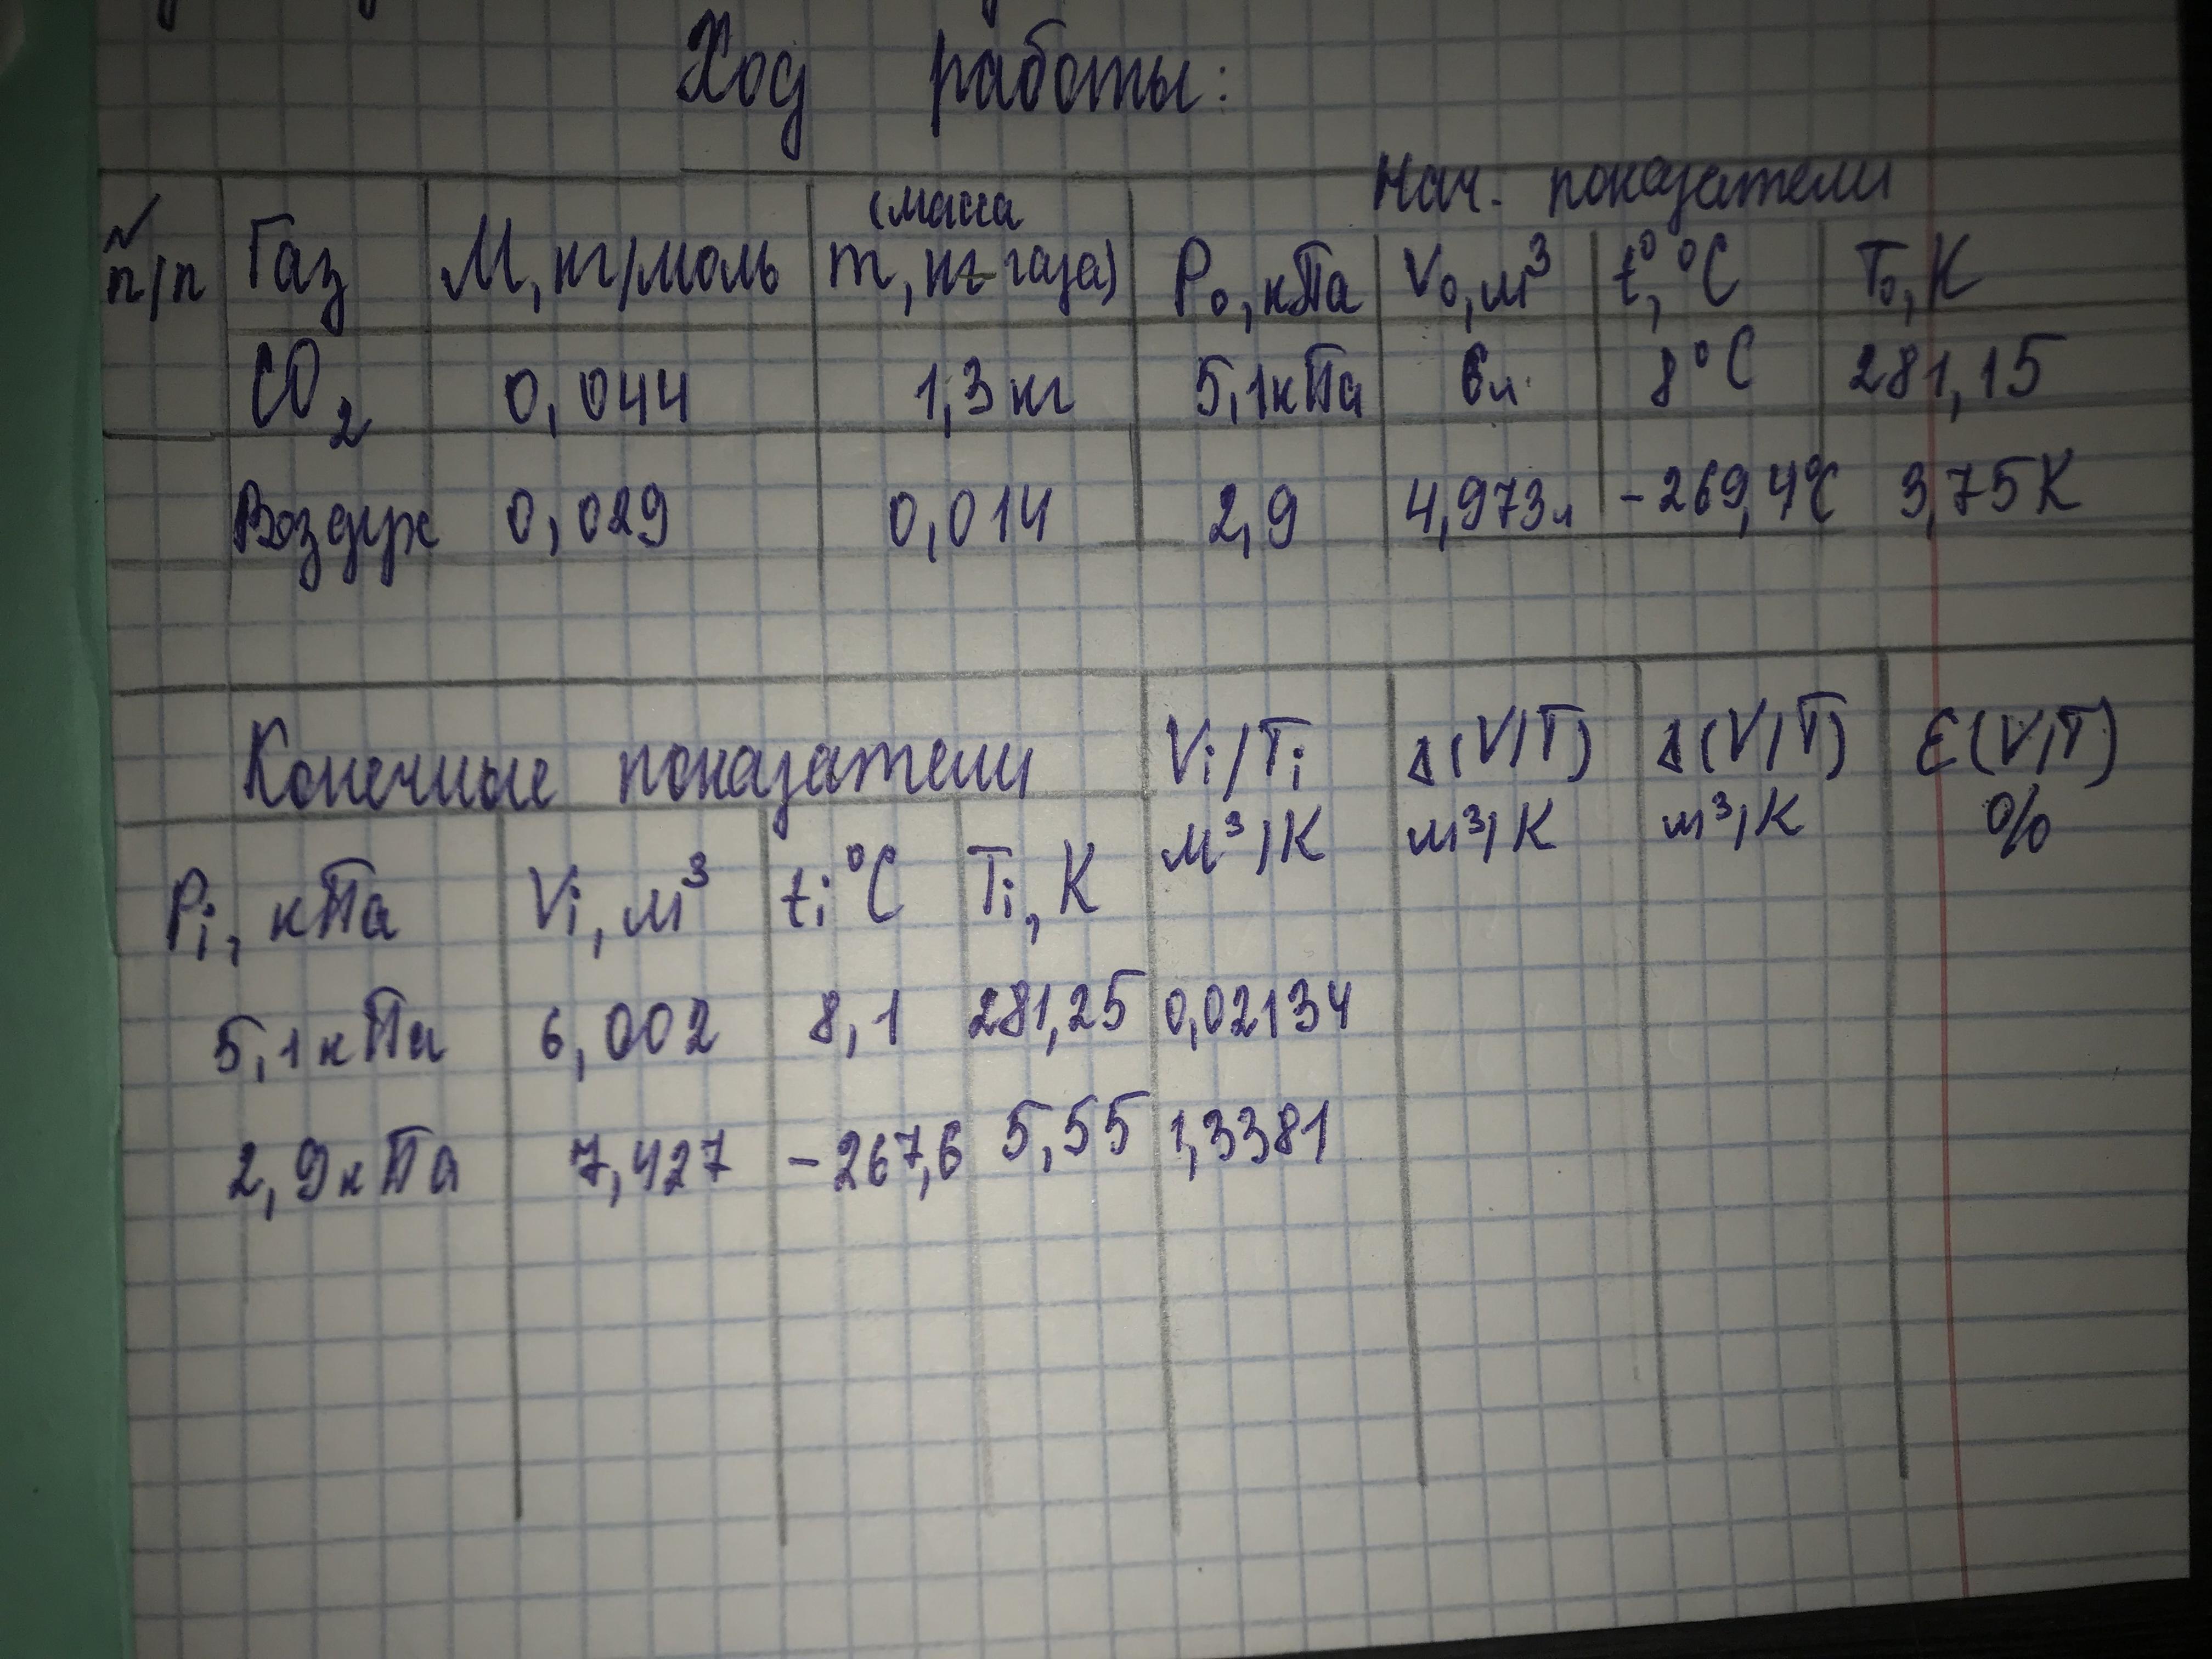 Ход работы:
Нач. показатели
№ п/п Газ М, кг/моль m, кг (масса газа) P₀, кПа V₀, м³ t⁰, °C T₀, К
CO₂ 0,044 1,3 кг 5,1 кПа 6 л 8°C 281,15
Воздух 0,029 0,014 2,9 4,973 л -269,4°C 3,75 К
Конечные показатели Vi/Ti м³/К Δ(V/T) м³/К Δ(V/T) м³/К Ɛ(V/T) %
Pi, кПа Vi, м³ ti °C Ti, К
5,1 кПа 6,002 8,1 281,25 0,02134
2,9 кПа 7,427 -267,6 5,55 1,3381